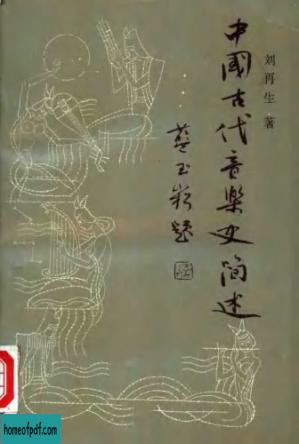 刘再生 著
中國古代音樂史简述
蓝玉崧题
homeofpdf.com